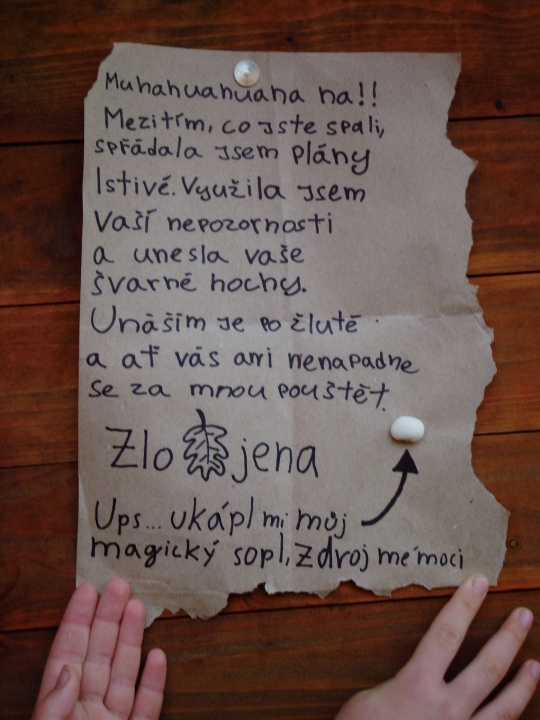 Muhahuahuaha ha!!
Mezitím, co jste spali,
spřádala jsem plány
lstivé. Využila jsem
vaší nepozornosti
a unesla vaše
švarné hochy.
Unáším je po žluté
a ať vás ani nenapadne
se za mnou pouštět.
Zlo jena
Ups... ukápl mi můj
magický sopl, zdroj mé moci